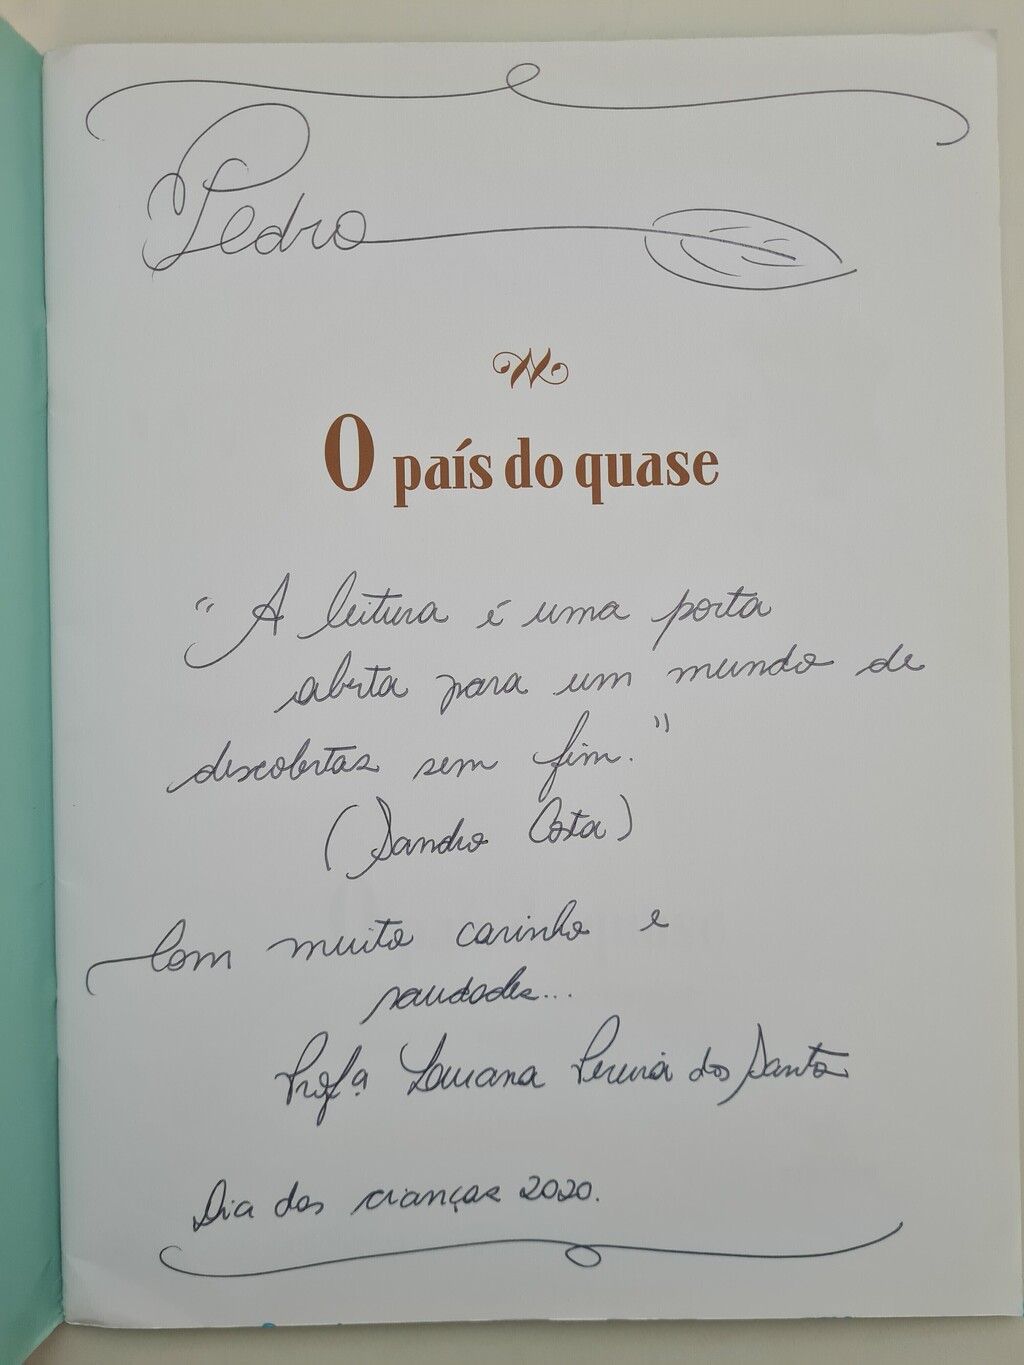 Pedro
O país do quase
"A leitura é uma porta
aberta para um mundo de
descobertas sem fim."
(Sandro Costa)
Com muito carinho e
saudades...
Profª Lauana Pereira dos Santos
Dia das crianças 2020.